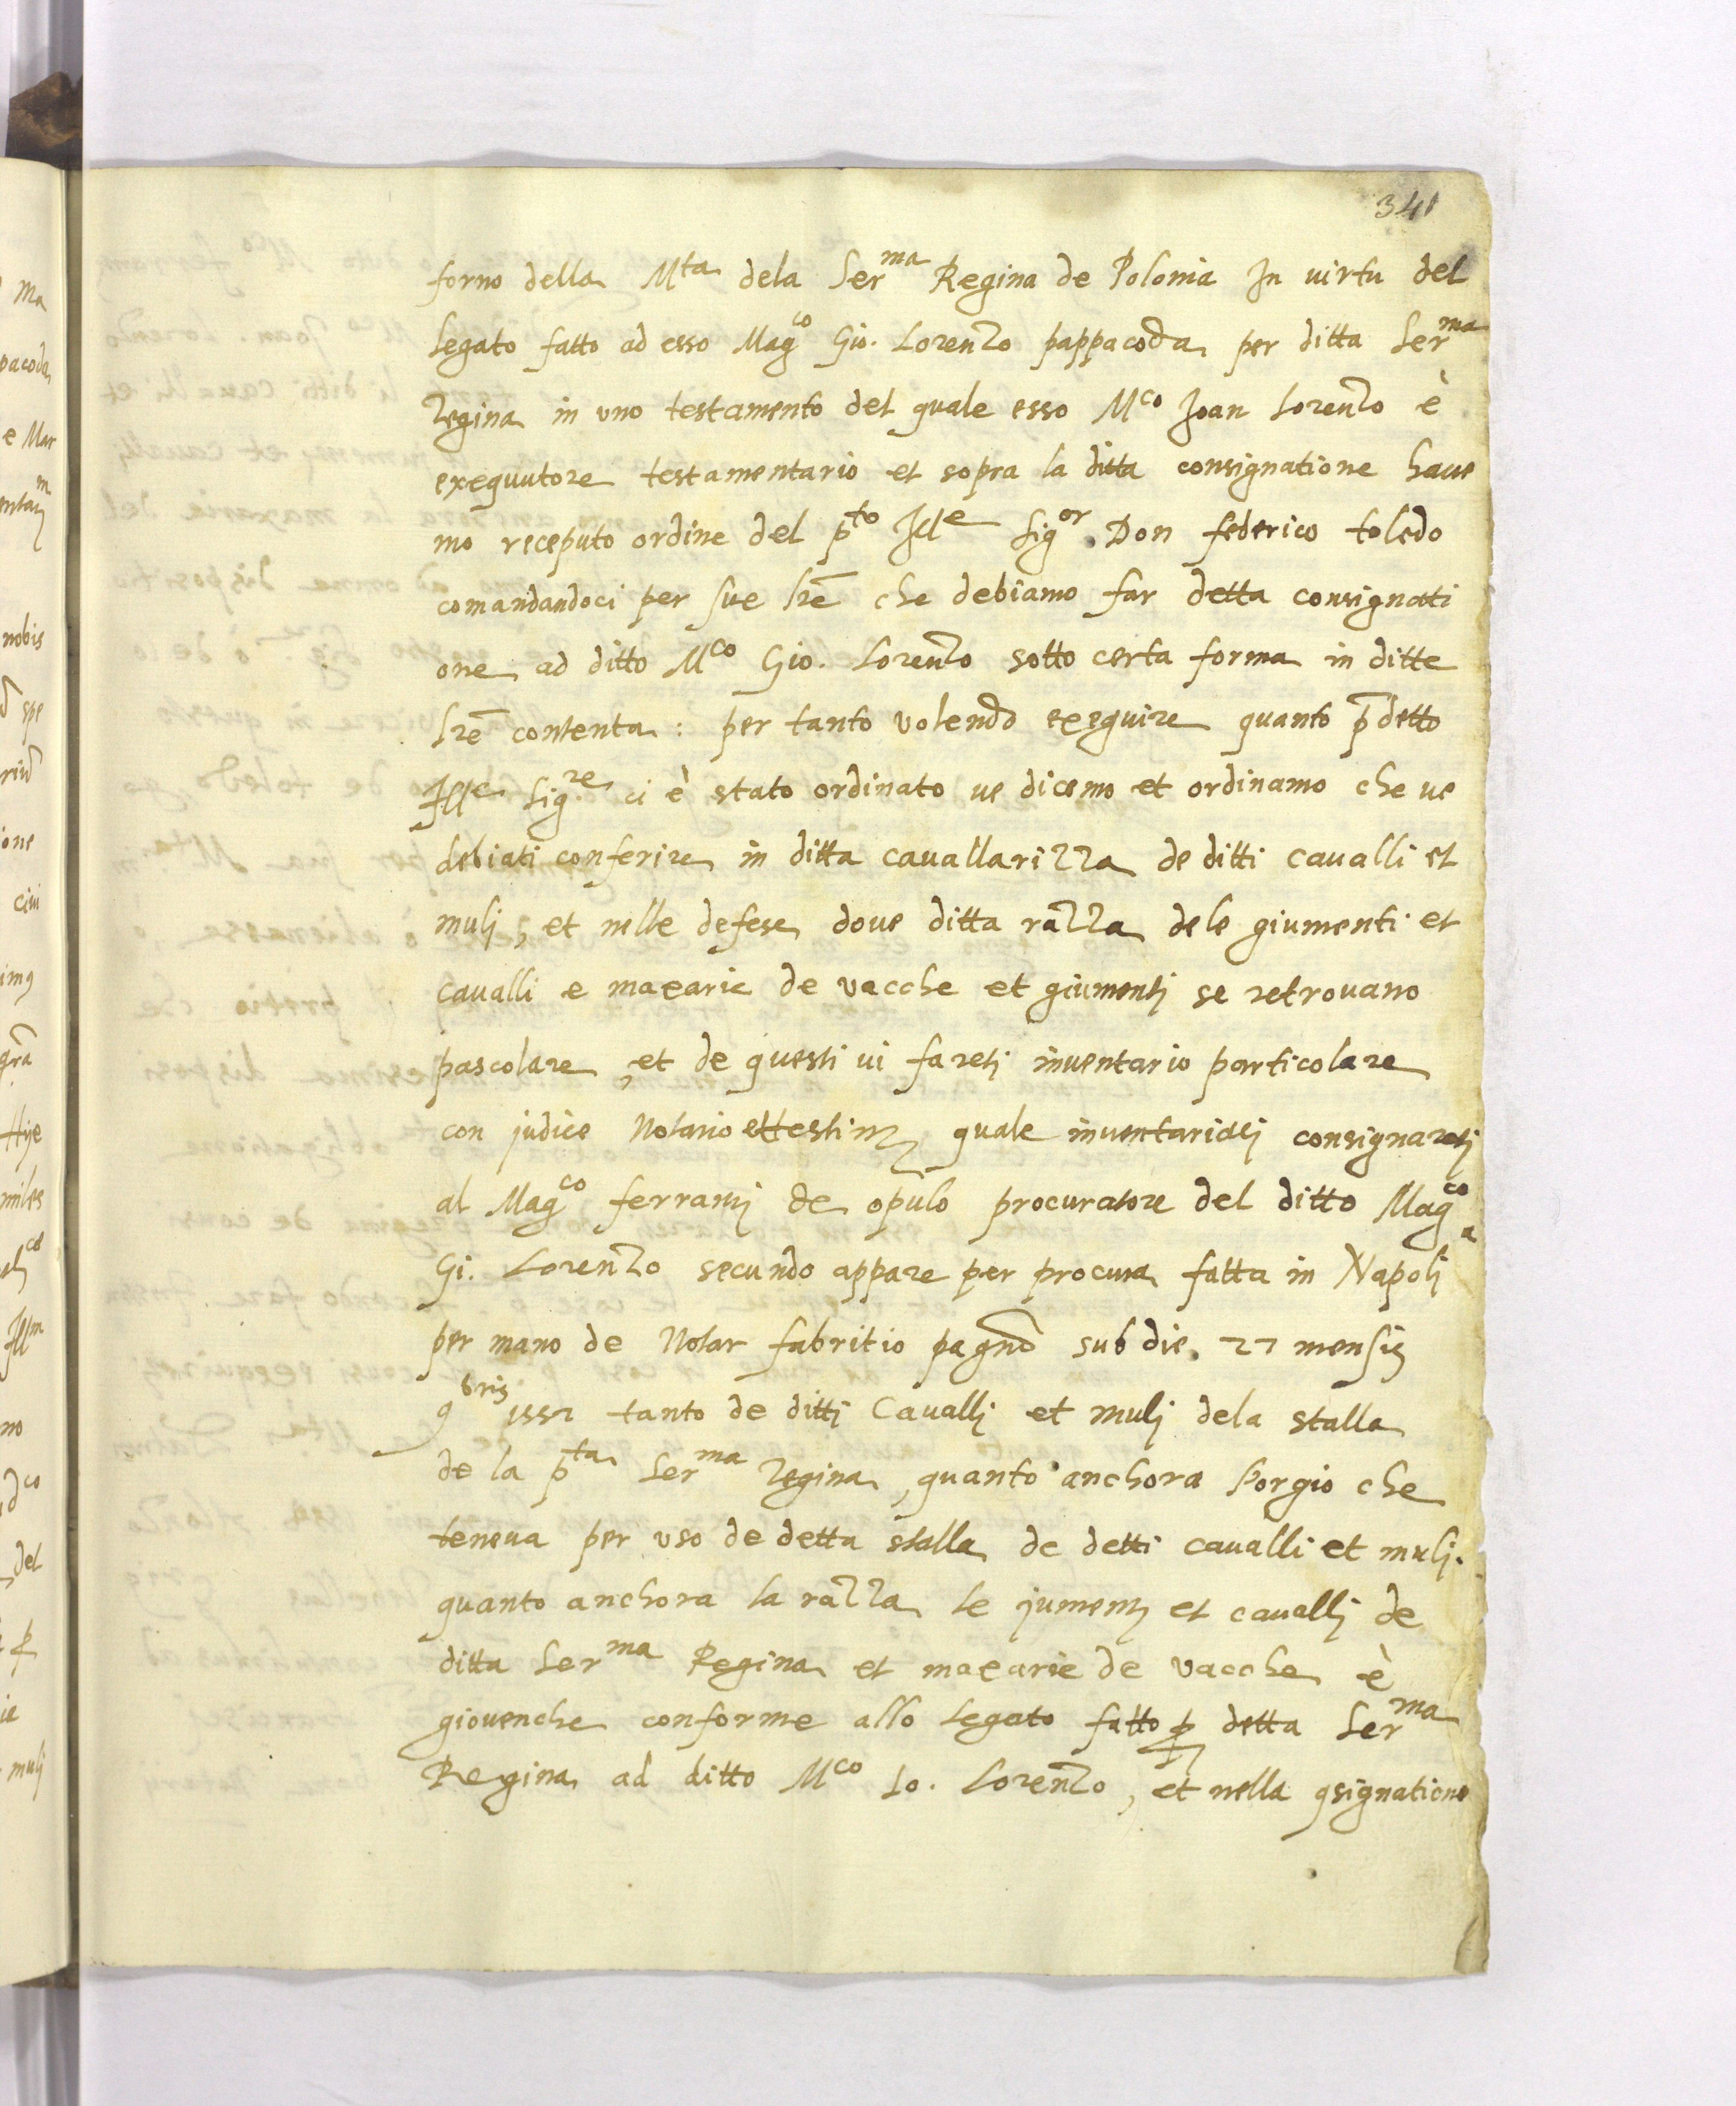 341
forno della M.ta dela Ser.ma Regina de Polonia In virtu del
legato fatto ad esso Mag.co Gio. Lorenzo pappacoda per ditta Ser.ma
Regina in uno testamento del quale esso M.co Joan Lorenzo è
exequutore testamentario et sopra la ditta consignatione have
mo receputo ordine del p.to Ill.e Sig.or Don federico toledo
comandandoci per sue lre che debiamo far detta consignati
one ad ditto M.co Gio. Lorenzo sotto certa forma in ditte
lre contenta: per tanto volendo exeguire quanto p detto
Ill.e Sig.re ci è stato ordinato ve dicemo et ordinamo che ve
debiati conferire in ditta cavallarizza de ditti cavalli et
mulj, et nelle defese dove ditta razza dele giumenti et
cavalli e maxarie de vacche et giumentj se retrovano
pascolare, et de questi vi faretj inventario particolare
con judice Notario et testimonj quale consignaretj
al Mag.co ferrantj de opulo procuratore del ditto Mag.co
Gi. Lorenzo secundo appare per procura fatta in Napolj
per mano de Notar fabritio pagno sub die. 27 mensis
9bris 1557 tanto de dittj Cavallj et mulj dela stalla
de la p.ta Ser.ma Regina, quanto anchora che
teneva per uso de detta stalla de detti cavalli et mulj.
quanto anchora la razza le jumentj et cavallj de
ditta Ser.ma Regina et maxarie de vacche è
giovenche conforme allo legato fatto p detta Ser.ma
Regina ad ditto M.co Io. Lorenzo, et nella 9signatione
ma
pacoda
e Mar
nobis
spe
one
gra
miles
Ill.m
del
mulj